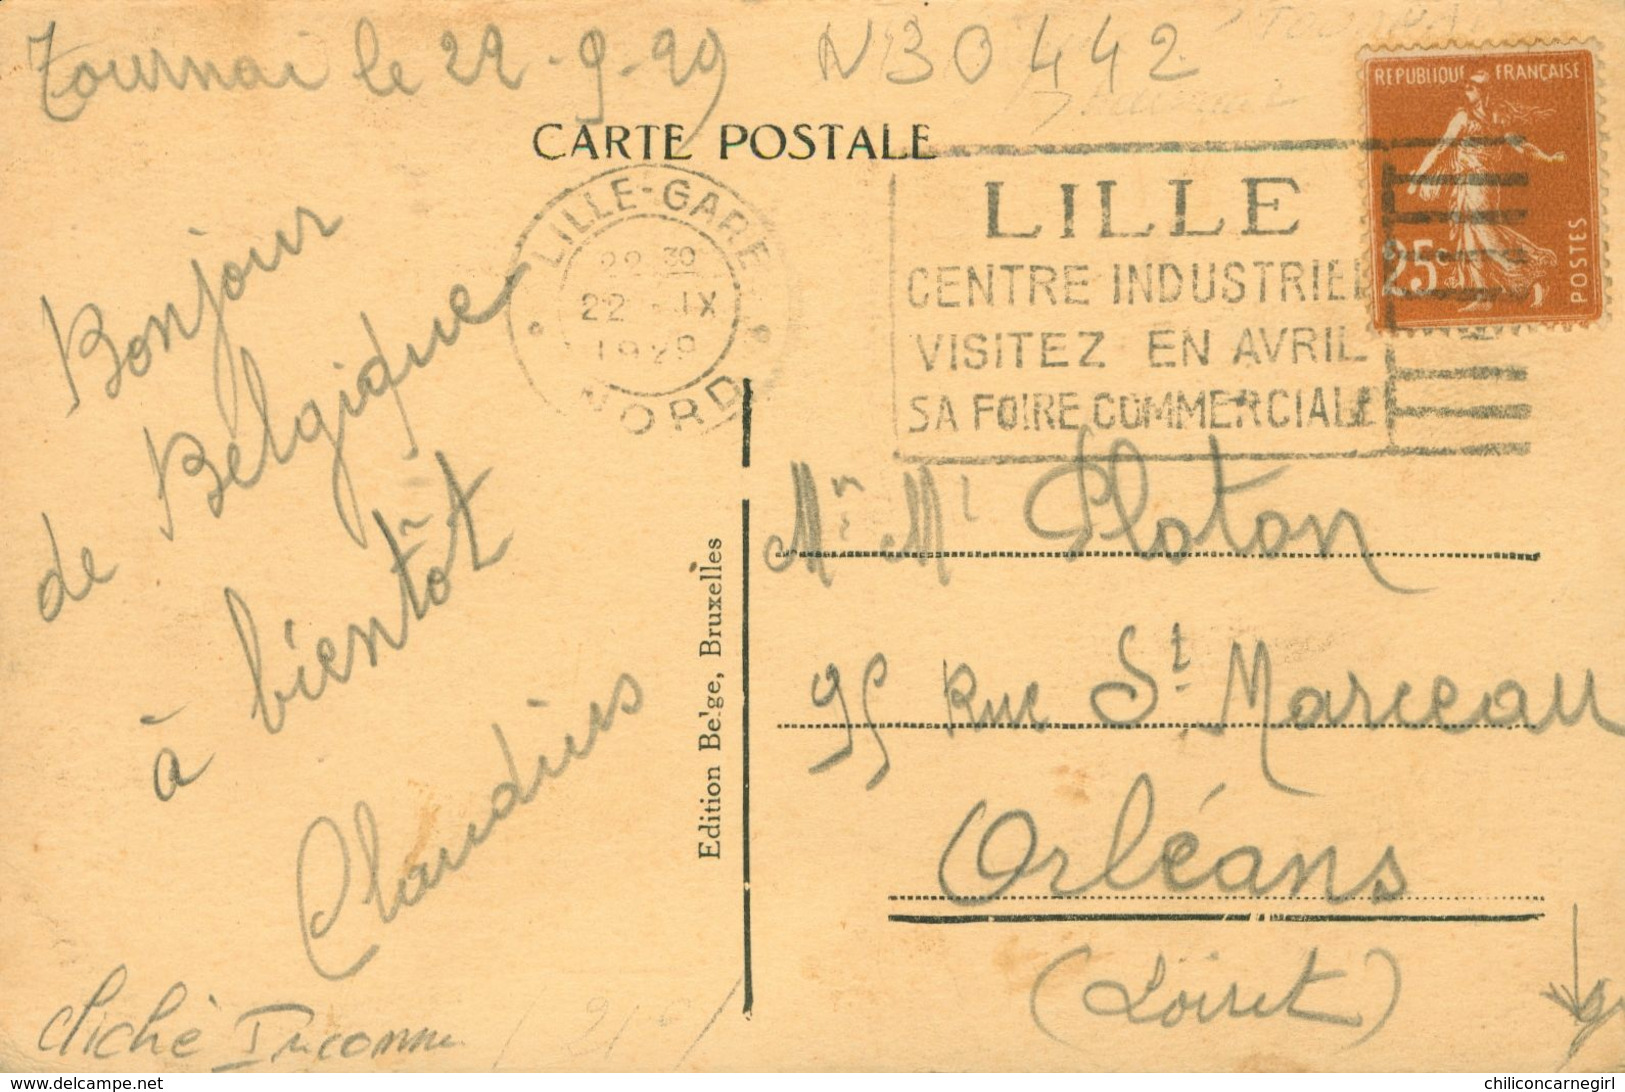 Tournai le 22-9-29
N 30442
CARTE POSTALE
REPUBLIQUE FRANÇAISE
25c
POSTES
LILLE-GARE
22 30
22 - IX
1929
NORD
LILLE
CENTRE INDUSTRIEL
VISITEZ EN AVRIL
SA FOIRE COMMERCIALE
Bonjour
de Belgique
à bientôt
Claudius
Edition Belge, Bruxelles
Platon
95 Rue St. Marceau
Orléans
(Loiret)
cliché Inconnu
www.delcampe.net
chiliconcarnegirl